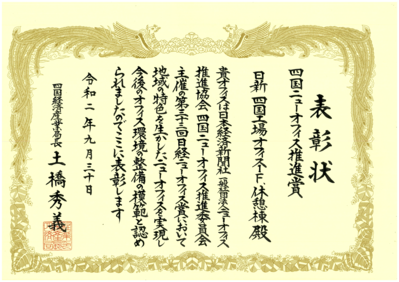 表彰状
四国ニューオフィス推進賞
日新 四国工場オフィス1F、休憩棟 殿
貴オフィスは日本経済新聞社 一般社団法人ニューオフィス
推進協会 四国ニューオフィス推進委員会
主催の第三十三回日経ニューオフィス賞において
地域の特色を生かしたニューオフィスを実現し
今後のオフィス環境整備の模範と認め
られましたのでここに表彰します
令和二年九月三十日
四国経済産業局長 土橋秀義